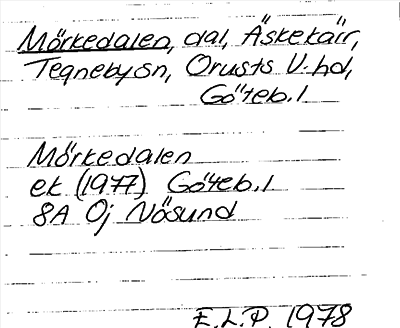 Mörkedalen, dal, Äskekärr,
Tegneby sn, Orusts V. hd,
Göteb. l
Mörkedalen
ek (1977) Göteb. l
8A 0j Nösund
E.L.P. 1978